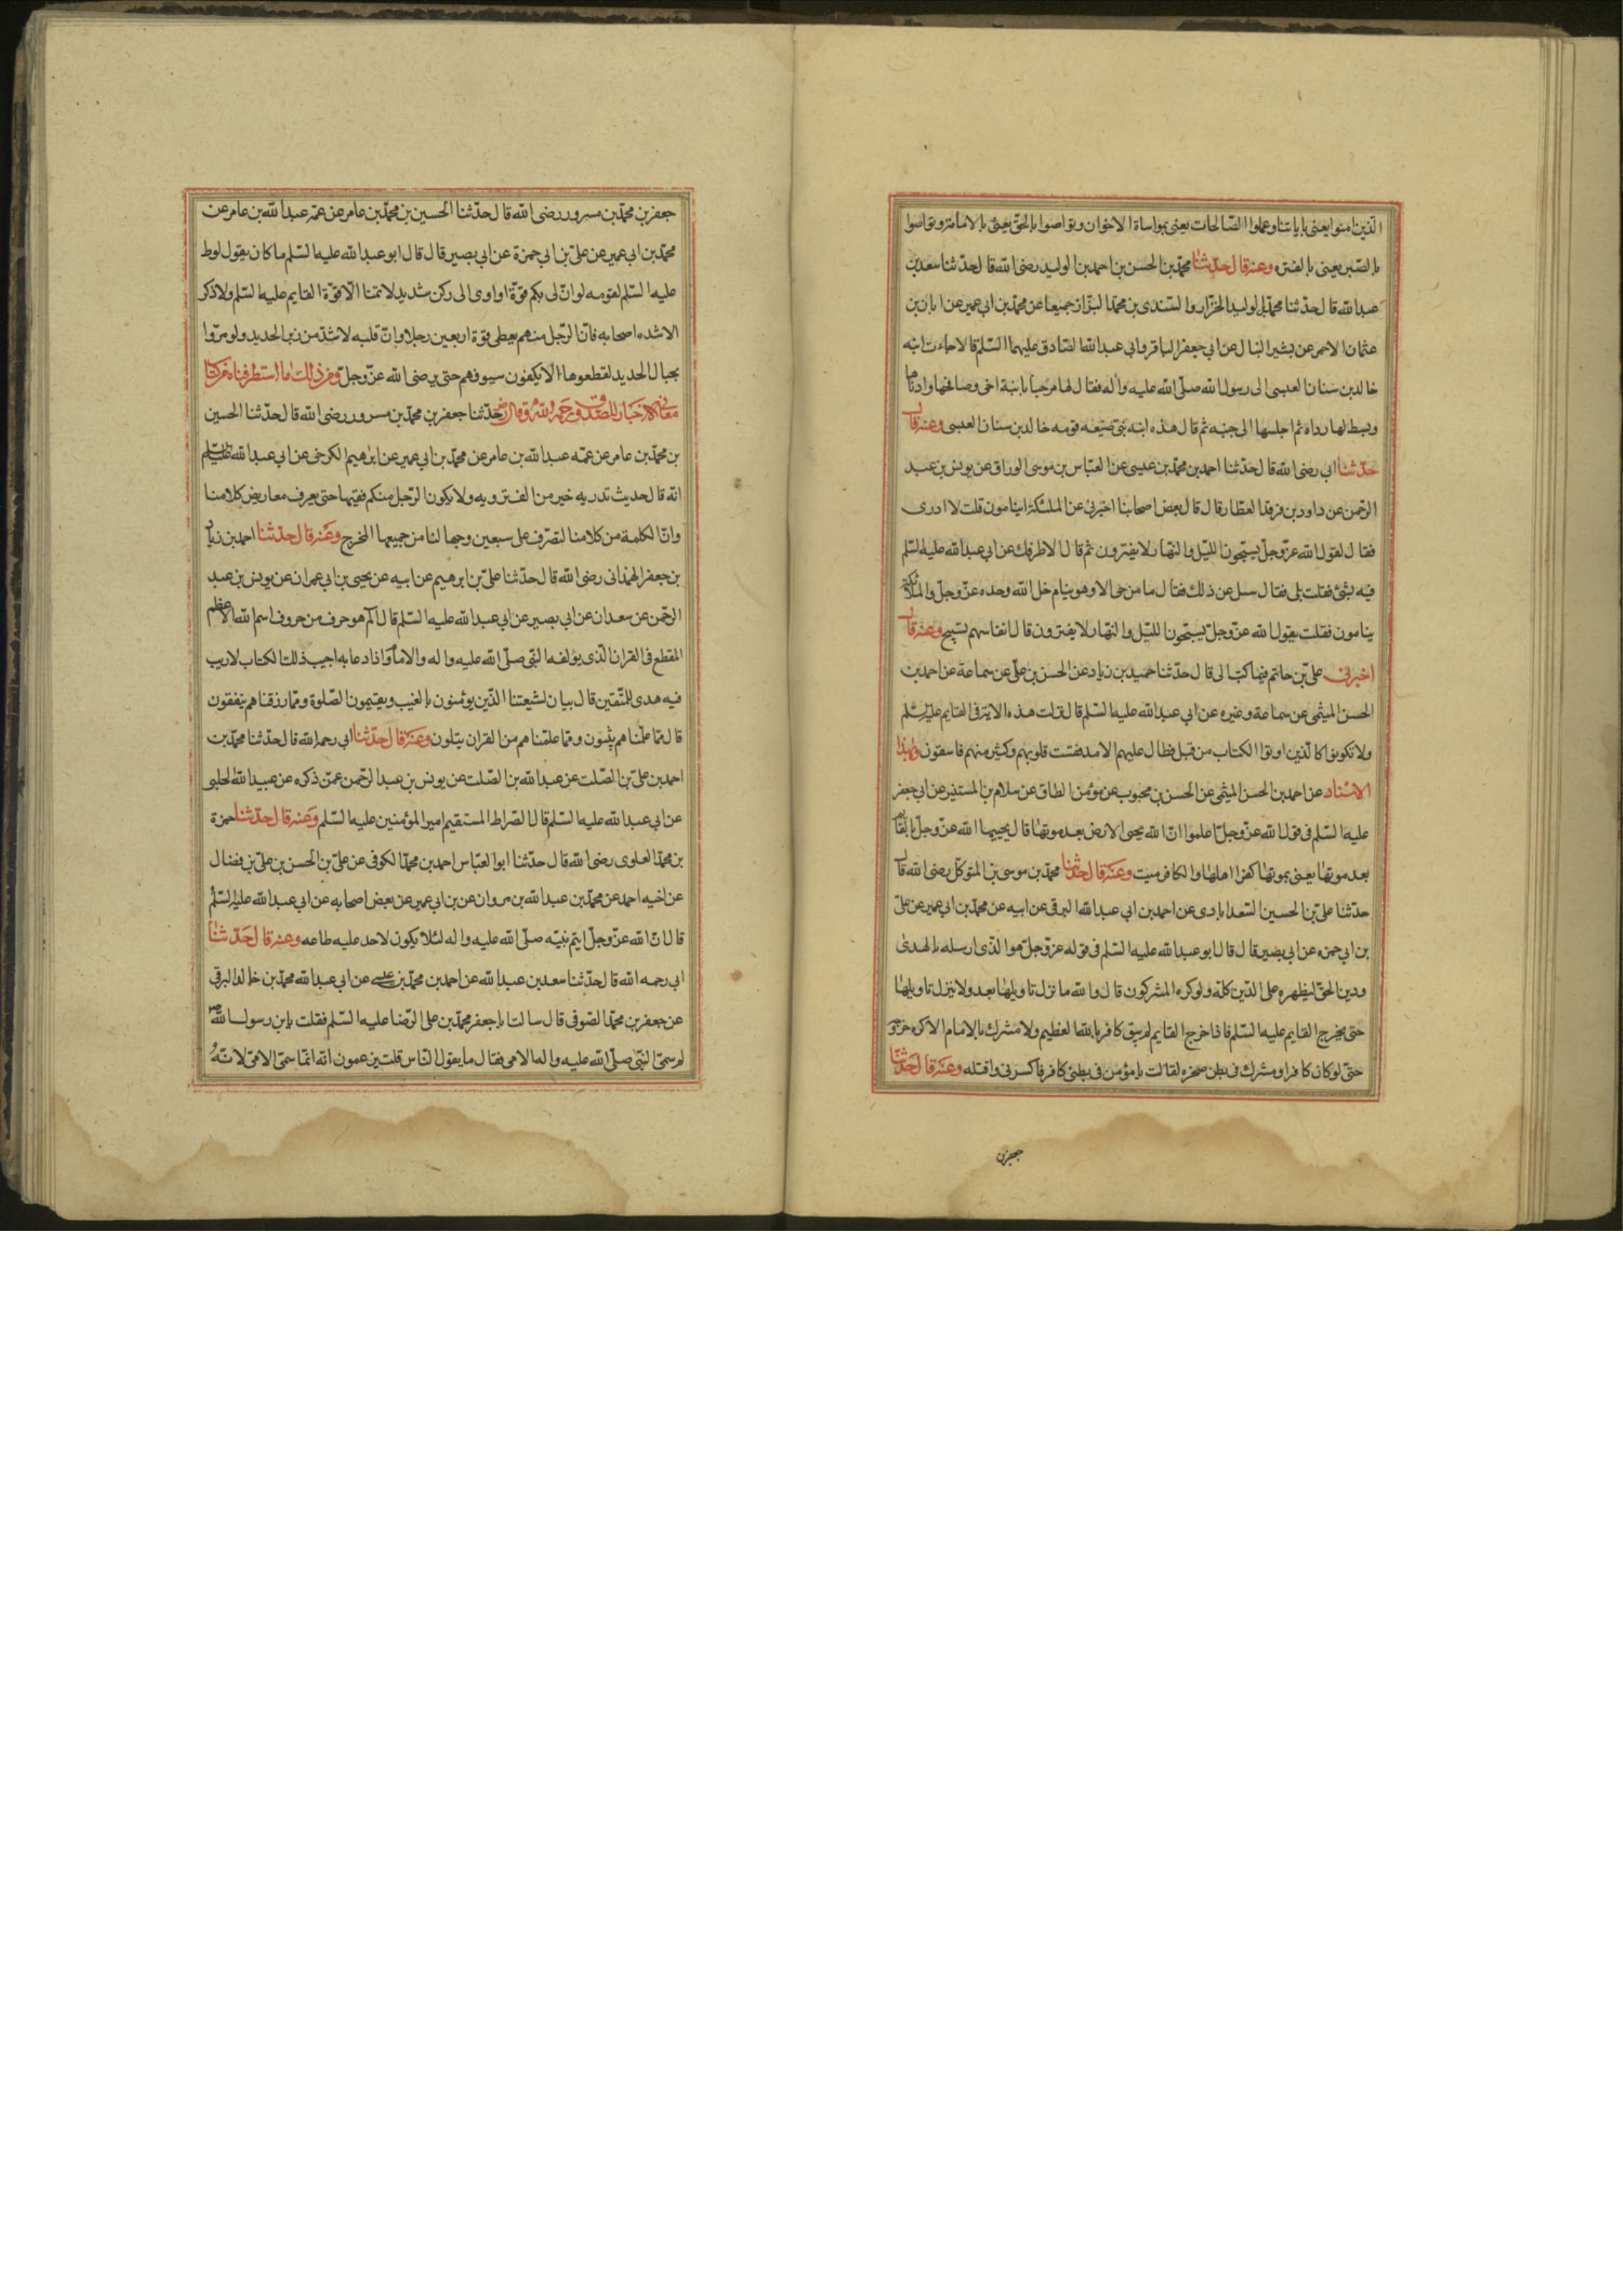 الذين امنوا يعنى باياتنا وعملوا الصالحات يعنى بمواساة الاخوان وتواصوا بالحق يعنى بالامامة وتواصوا
بالصبر يعنى بالفترة وعنه قال حدثنا محمد بن الحسن بن احمد بن الوليد رضى الله قال حدثنا سعد بن
عبد الله قال حدثنا محمد بن الوليد الخزاز والسندى بن محمد البزاز جميعا عن محمد بن ابى عمير عن ابان بن
عثمان الاحمر عن بشير النبال عن ابى جعفر الباقر وابى عبد الله الصادق عليهما السلم قالا جاءت ابنه
خالد بن سنان العبسى الى رسول الله صلى الله عليه واله فقال لها مرحبا بابنة اخى وصافحها وادناها
وبسط لها رداه ثم اجلسها الى جنبه ثم قال هذه ابنه نبى ضيعه قومه خالد بن سنان العبسى وعنه قال
حدثنا ابى رضى الله قال حدثنا احمد بن محمد بن عيسى عن العباس بن موسى الوراق عن يونس بن عبد
الرحمن عن داود بن فرقد العطار قال قال بعض اصحابنا اخبرنى عن الملئكة اينامون قلت لا ادرى
فقال لقول الله عز وجل يسبحون الليل والنهار لا يفترون ثم قال الا اطرفك عن ابى عبد الله عليه السلم
فيه بشئ فقلت بلى فقال سئل عن ذلك فقال ما من حى الا وهو ينام خلا الله وحده عز وجل والملائكة
ينامون فقلت يقول الله عز وجل يسبحون الليل والنهار لا يفترون قال انفاسهم تسبيح وعنه قال
اخبرنى على بن حاتم فيما كتب الى قال حدثنا حميد بن زياد عن الحسن بن على عن سماعة عن احمد بن
الحسن الميثمى عن سماعة وغيره عن ابى عبد الله عليه السلم قال نزلت هذه الاية فى القايم عليه السلم
ولا تكونوا كالذين اوتوا الكتاب من قبل فطال عليهم الامد فقست قلوبهم وكثير منهم فاسقون وبهذا
الاسناد عن احمد بن الحسن الميثمى عن الحسن بن محبوب عن مؤمن الطاق عن سلام بن المستنير عن ابى جعفر
عليه السلم فى قول الله عز وجل اعلموا ان الله يحيى الارض بعد موتها قال يحييها الله عز وجل بالقايم
بعد موتها يعنى بموتها كفر اهلها والكافر ميت وعنه قال حدثنا محمد بن موسى بن المتوكل رضى الله قال
حدثنا على بن الحسين السعدابادى عن احمد بن ابى عبد الله البرقى عن ابيه عن محمد بن ابى عمير عن على
بن ابى حمزه عن ابى بصير قال قال ابو عبد الله عليه السلم فى قوله عز وجل هو الذى ارسله بالهدى
ودين الحق ليظهره على الدين كله ولو كره المشركون قال والله ما نزل تاويلها بعد ولا ينزل تاويلها
حتى يخرج القايم عليه السلم فاذا خرج القايم لم يبق كافر بالله العظيم ولا مشرك بالامام الا كره خروجه
حتى لو كان كافر او مشرك فى بطن صخره لقالت يا مؤمن فى بطنى كافر فاكسرنى واقتله وعنه قال حدثنا
جعفر بن
جعفر بن محمد بن مسرور رضى الله قال حدثنا الحسين بن محمد بن عامر عن عمه عبد الله بن عامر عن
محمد بن ابى عمير عن على بن ابى حمزة عن ابى بصير قال قال ابو عبد الله عليه السلم ما كان يقول لوط
عليه السلم لقومه لو ان لى بكم قوة او اوى الى ركن شديد لا تمنا الا قوة القايم عليه السلم ولا ذكر
الا شده اصحابه فان الرجل منهم يعطى قوة اربعين رجلا وان قلبه لاشد من زبر الحديد ولو مروا
بجبال الحديد لقطعوها لا يكفون سيوفهم حتى يرضى الله عز وجل ومن ذلك ما استطرفناه من كتاب
معانى الاخبار للصدوق رحمه الله قال حدثنا جعفر بن محمد بن مسرور رضى الله قال حدثنا الحسين
بن محمد بن عامر عن عمه عبد الله بن عامر عن محمد بن ابى عمير عن ابراهيم الكرخى عن ابى عبد الله عليه السلم
انه قال حديث تدريه خير من الف ترويه ولا يكون الرجل منكم فقيها حتى يعرف معاريض كلامنا
وان الكلمة من كلامنا لتصرف على سبعين وجها لنا من جميعها المخرج وعنه قال حدثنا احمد بن زياد
بن جعفر الهمدانى رضى الله قال حدثنا على بن ابرهيم عن ابيه عن يحيى بن ابى عمران عن يونس بن عبد
الرحمن عن سعدان عن ابى بصير عن ابى عبد الله عليه السلم قال الم هو حرف من حروف اسم الله الاعظم
المقطع فى القران الذى يؤلفه النبى صلى الله عليه واله والامام واذا دعا به اجيب ذلك الكتاب لا ريب
فيه هدى للمتقين قال بيان لشيعتنا الذين يومنون بالغيب ويقيمون الصلوة ومما رزقناهم ينفقون
قال مما علمناهم يبثون ومما علمناهم من القران يتلون وعنه قال حدثنا ابى رحمه الله قال حدثنا محمد بن
احمد بن على بن الصلت عن عبد الله بن الصلت عن يونس بن عبد الرحمن عمن ذكره عن عبيد الله الحلبى
عن ابى عبد الله عليه السلم قال الصراط المستقيم امير المؤمنين عليه السلم وعنه قال حدثنا حمزة
بن محمد العلوى رضى الله قال حدثنا ابو العباس احمد بن محمد الكوفى عن على بن الحسن بن على بن فضال
عن اخيه احمد عن محمد بن عبد الله بن مروان عن بن ابى عمير عن بعض اصحابه عن ابى عبد الله عليه السلم
قال ان الله عز وجل ايتم نبيه صلى الله عليه واله لئلا يكون لاحد عليه طاعه وعنه قال حدثنا
ابى رحمه الله قال حدثنا سعد بن عبد الله عن احمد بن محمد بن عيسى عن ابى عبد الله محمد بن خالد البرقى
عن جعفر بن محمد الصوفى قال سالت ابا جعفر محمد بن على الرضا عليه السلم فقلت يا بن رسول الله
لم سمى النبى صلى الله عليه واله الامى فقال ما يقول الناس قلت يزعمون انه انما سمى الامى لانه